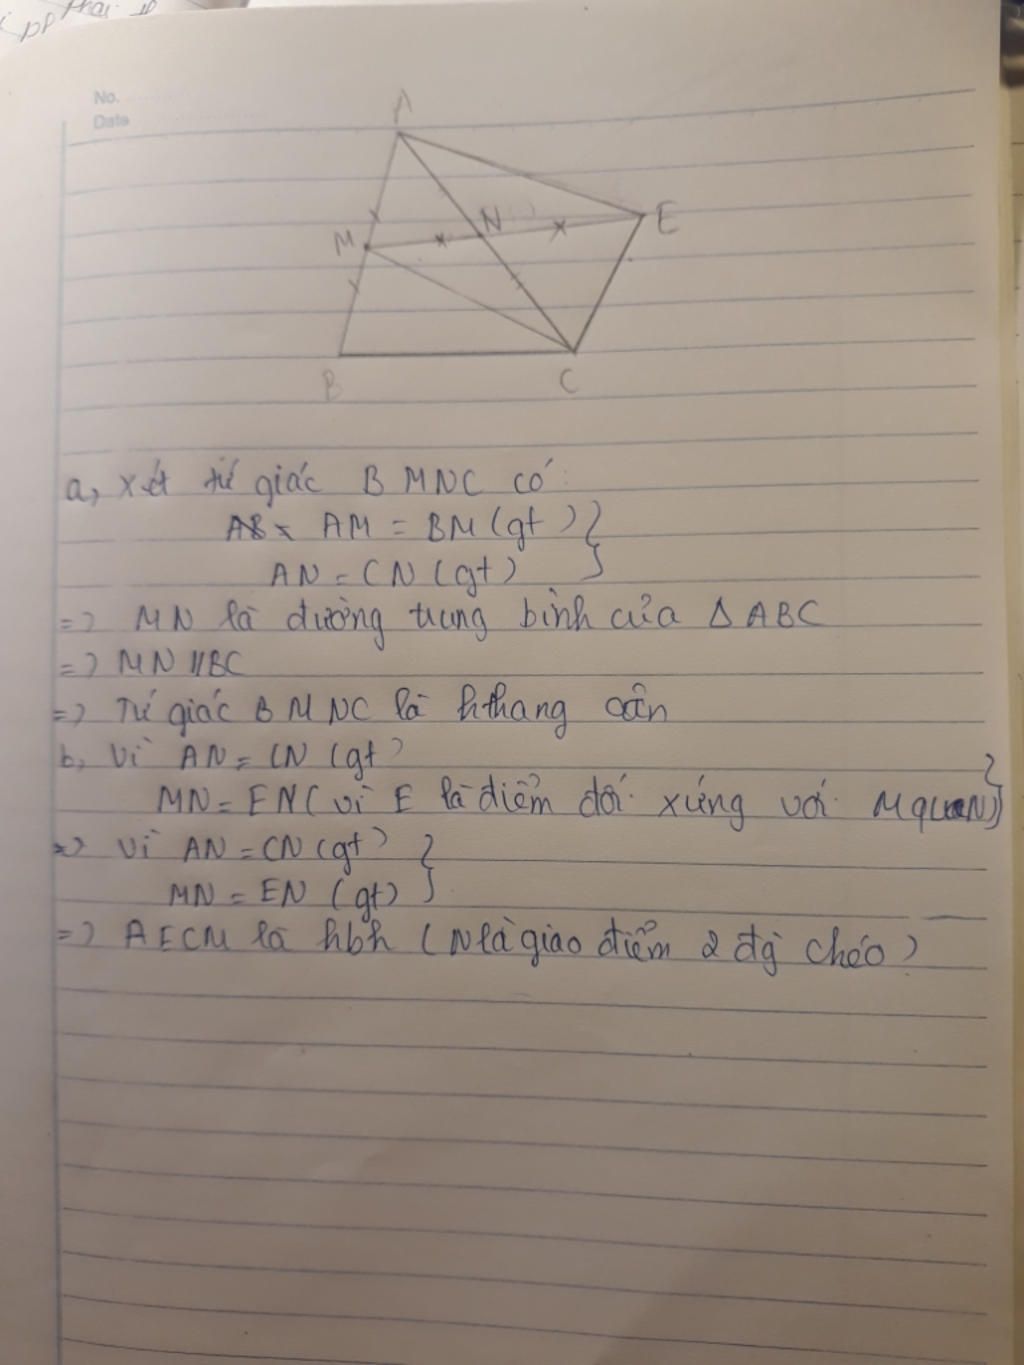 pp
No.
Date
A
M
N
E
B
C
a, Xét tứ giác BMNC có:
AM = BM (gt)
AN = CN (gt)
=> MN là đường trung bình của Δ ABC
=> MN // BC
=> Tứ giác BMNC là hthang cân
b, Vì AN = CN (gt)
MN = EN (vì E là điểm đối xứng với M qua N)
=> Vì AN = CN (gt)
MN = EN (gt)
=> AECM là hbh (N là giao điểm 2 đg chéo)